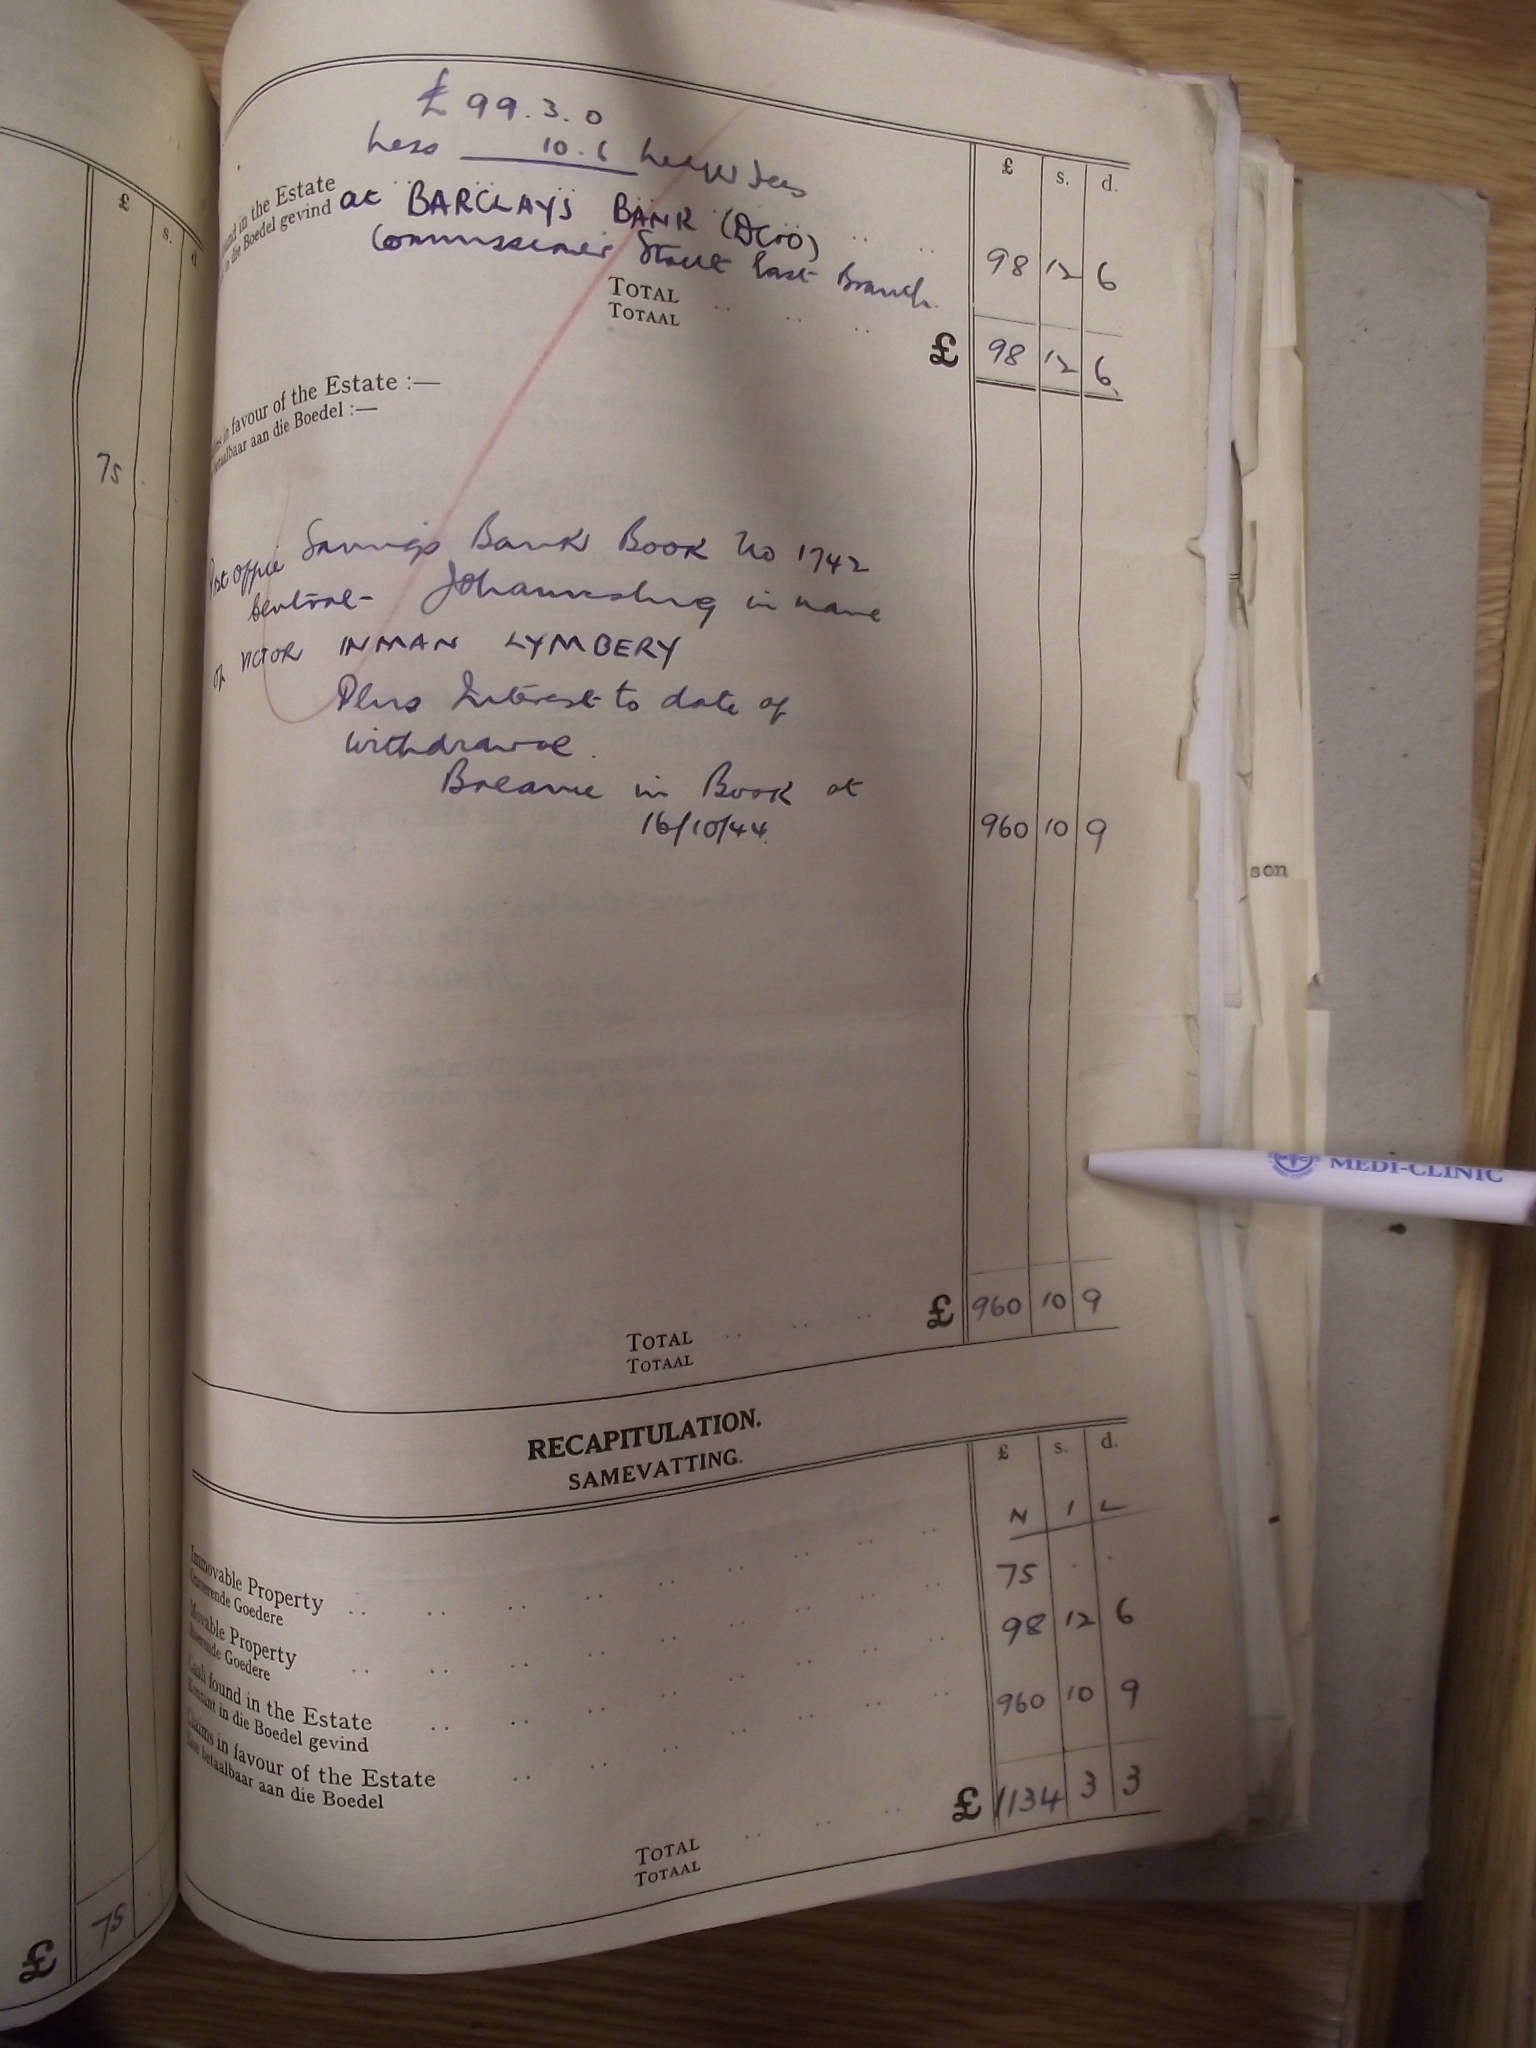 £ s. d.
75
£ 75
£99.3.0
Less 10.6 Ledger fees
£ s. d.
found in the Estate
in die Boedel gevind
at BARCLAYS BANK (DC&O)
Commissioner Street East Branch.
98 12 6
TOTAL
TOTAAL
£ 98 12 6
in favour of the Estate :—
betaalbaar aan die Boedel :—
Post Office Savings Bank Book No 1742
Central Johannesburg in name
of VICTOR INMAN LYMBERY
Plus Interest to date of
withdrawal.
Balance in Book at
16/10/44. 960 10 9
TOTAL
TOTAAL
£ 960 10 9
RECAPITULATION.
SAMEVATTING.
£ s. d.
Immovable Property
Onroerende Goedere
N I L
Movable Property
Roerende Goedere
75 . .
Cash found in the Estate
Kontant in die Boedel gevind
98 12 6
Claims in favour of the Estate
betaalbaar aan die Boedel
960 10 9
TOTAL
TOTAAL
£ 1134 3 3
son
MEDI-CLINIC